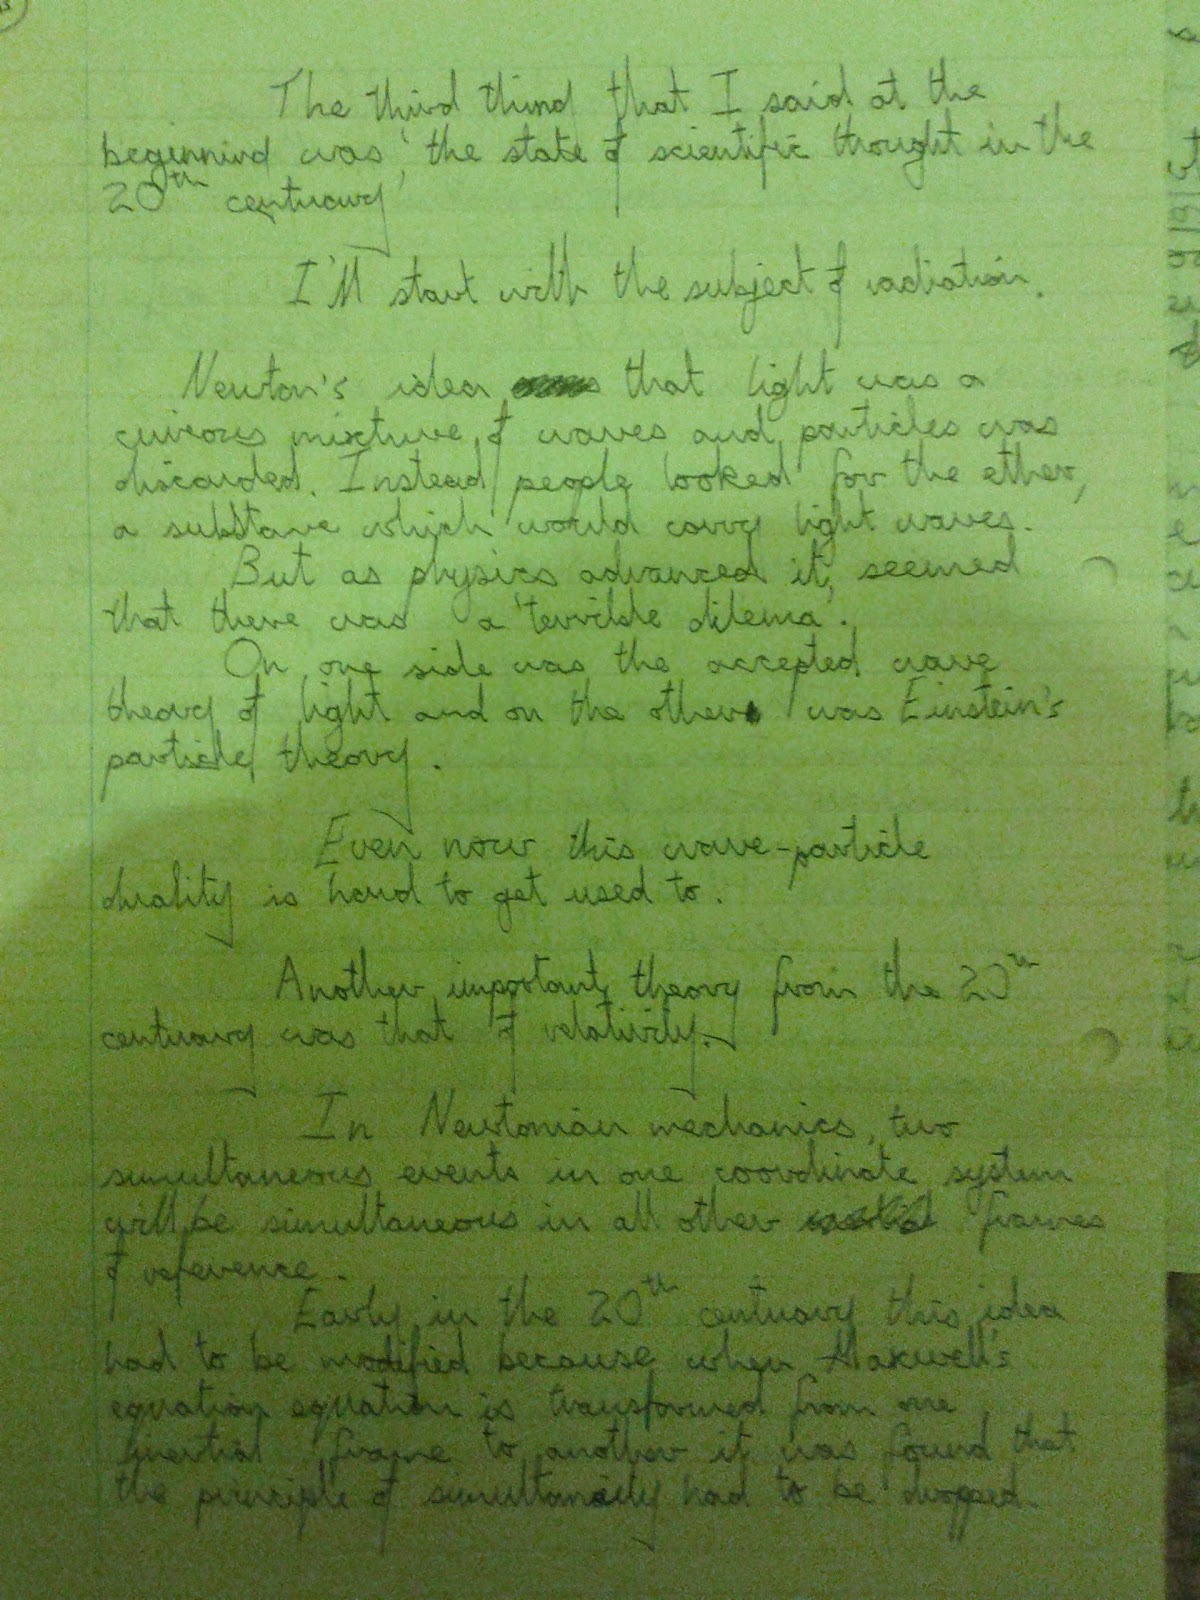 The third thind that I said at the
beginnind was 'the state of scientific thought in the
20th centuary'
I'll start with the subject of radiation.
Newton's idea that light was a
curious mixture of waves and particles was
discarded. Instead people looked for the ether,
a substane which would carry light waves.
But as physics advanced it seemed
that there was a 'terrible dilema'.
On one side was the accepted wave
theory of light and on the other was Einstein's
particle theory.
Even now this wave-particle
duality is hard to get used to.
Another important theory from the 20th
centuary was that of relativity.
In Newtonian mechanics, two
simultaneous events in one coordinate system
will be simultaneous in all other frames
of reference.
Early in the 20th centuary this idea
had to be modified because when Maxwell's
equation equation is transformed from one
inertial frame to another it was found that
the principle of simultaneity had to be dropped.